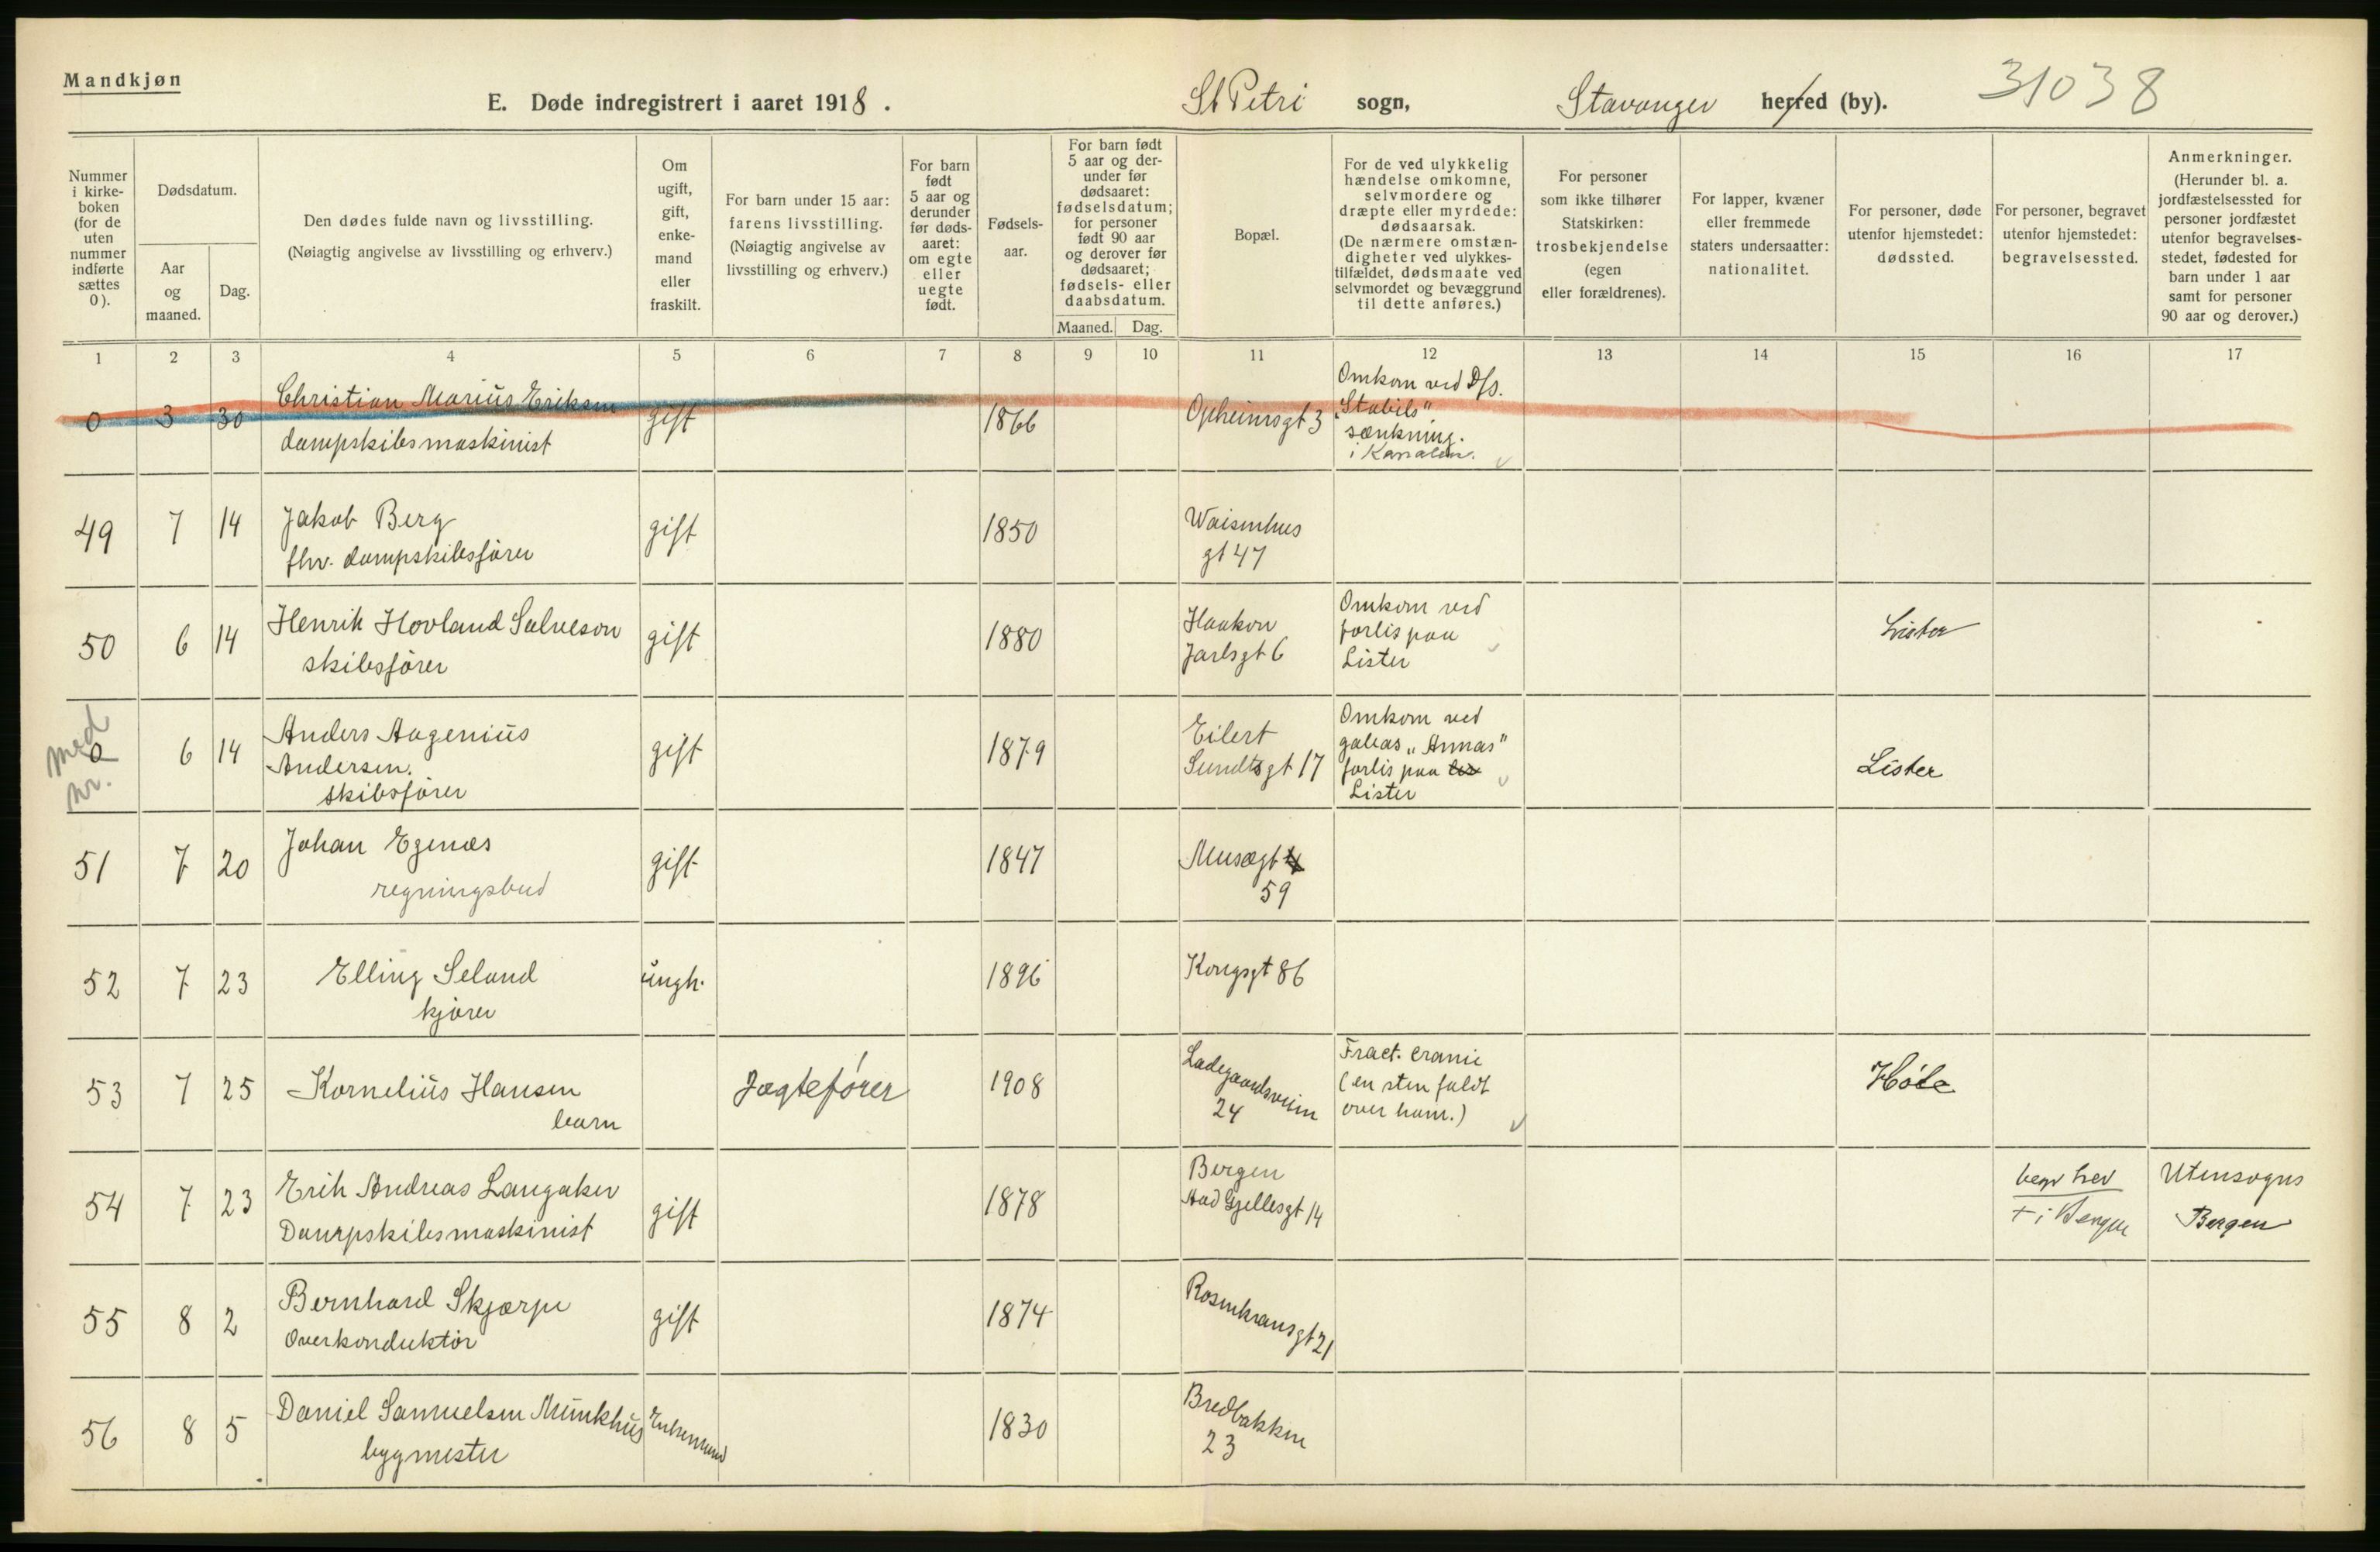 Mandkjøn
E. Døde indregistrert i aaret 1918.
St Petri sogn,
Stavanger herred (by).
31038
Nummer i kirke-boken (for de uten nummer indførte sættes 0).
Dødsdatum.
Aar og maaned.
Dag.
Den dødes fulde navn og livsstilling.
(Nøiagtig angivelse av livsstilling og erhverv.)
Om ugift, gift, enke-mand eller fraskilt.
For barn under 15 aar: farens livsstilling.
(Nøiagtig angivelse av livsstilling og erhverv.)
For barn født 5 aar og derunder før døds-aaret: om egte eller uegte født.
Fødsels-aar.
For barn født 5 aar og der-under før dødsaaret: fødselsdatum; for personer født 90 aar og derover før dødsaaret; fødsels- eller daabsdatum.
Maaned. Dag.
Bopæl.
For de ved ulykkelig hændelse omkomne, selvmordere og dræpte eller myrdede: dødsaarsak.
(De nærmere omstæn-digheter ved ulykkes-tilfældet, dødsmaate ved selvmordet og bevæggrund til dette anføres.)
For personer som ikke tilhører Statskirken: trosbekjendelse (egen eller forældrenes).
For lapper, kvæner eller fremmede staters undersaatter: nationalitet.
For personer, døde utenfor hjemstedet: dødssted.
For personer, begravet utenfor hjemstedet: begravelsessted.
Anmerkninger.
(Herunder bl. a. jordfæstelsessted for personer jordfæstet utenfor begravelses-stedet, fødested for barn under 1 aar samt for personer 90 aar og derover.)
1 2 3 4 5 6 7 8 9 10 11 12 13 14 15 16 17
0 3 30 Christian Marius Eriksen gift 1866 Opheimsgt 3 Omkom ved D/s.
dampskibsmaskinist
"Stabils"
sænkning.
i Kanalen.
49 7 14 Jakob Berg gift 1850 Waisenhus
fhv. dampskibsfører gt 47
50 6 14 Henrik Hovland Salveson gift 1880 Haakon Omkom ved Lister
skibsfører Jarlsgt 6 forlis paa
Lister
med nr.
0 6 14 Anders Augenius gift 1879 Eilert Omkom ved Lister
Andersen. Sundtsgt 17 galeas „Annas"
skibsfører forlis paa
Lister
51 7 20 Johan Egenæs gift 1847 Musægt
regningsbud 59
52 7 23 Elling Seland ungk. 1896 Kongsgt 86
kjører
53 7 25 Kornelius Hansen Jagtefører 1908 Ladegaardsveien Fract. cranii Høle
barn 24 (en sten faldt
over ham.)
54 7 23 Erik Andreas Langaker gift 1878 Bergen begr her Utensogns
Dampskibsmaskinist Gjellesgt 14 + i Bergen Bergen
55 8 2 Bernhard Skjærpe gift 1874 Rosenkransgt 21
Overkonduktør
56 8 5 Daniel Samuelsen Munkhus Enkemand 1830 Bredbakken
bygmester 23